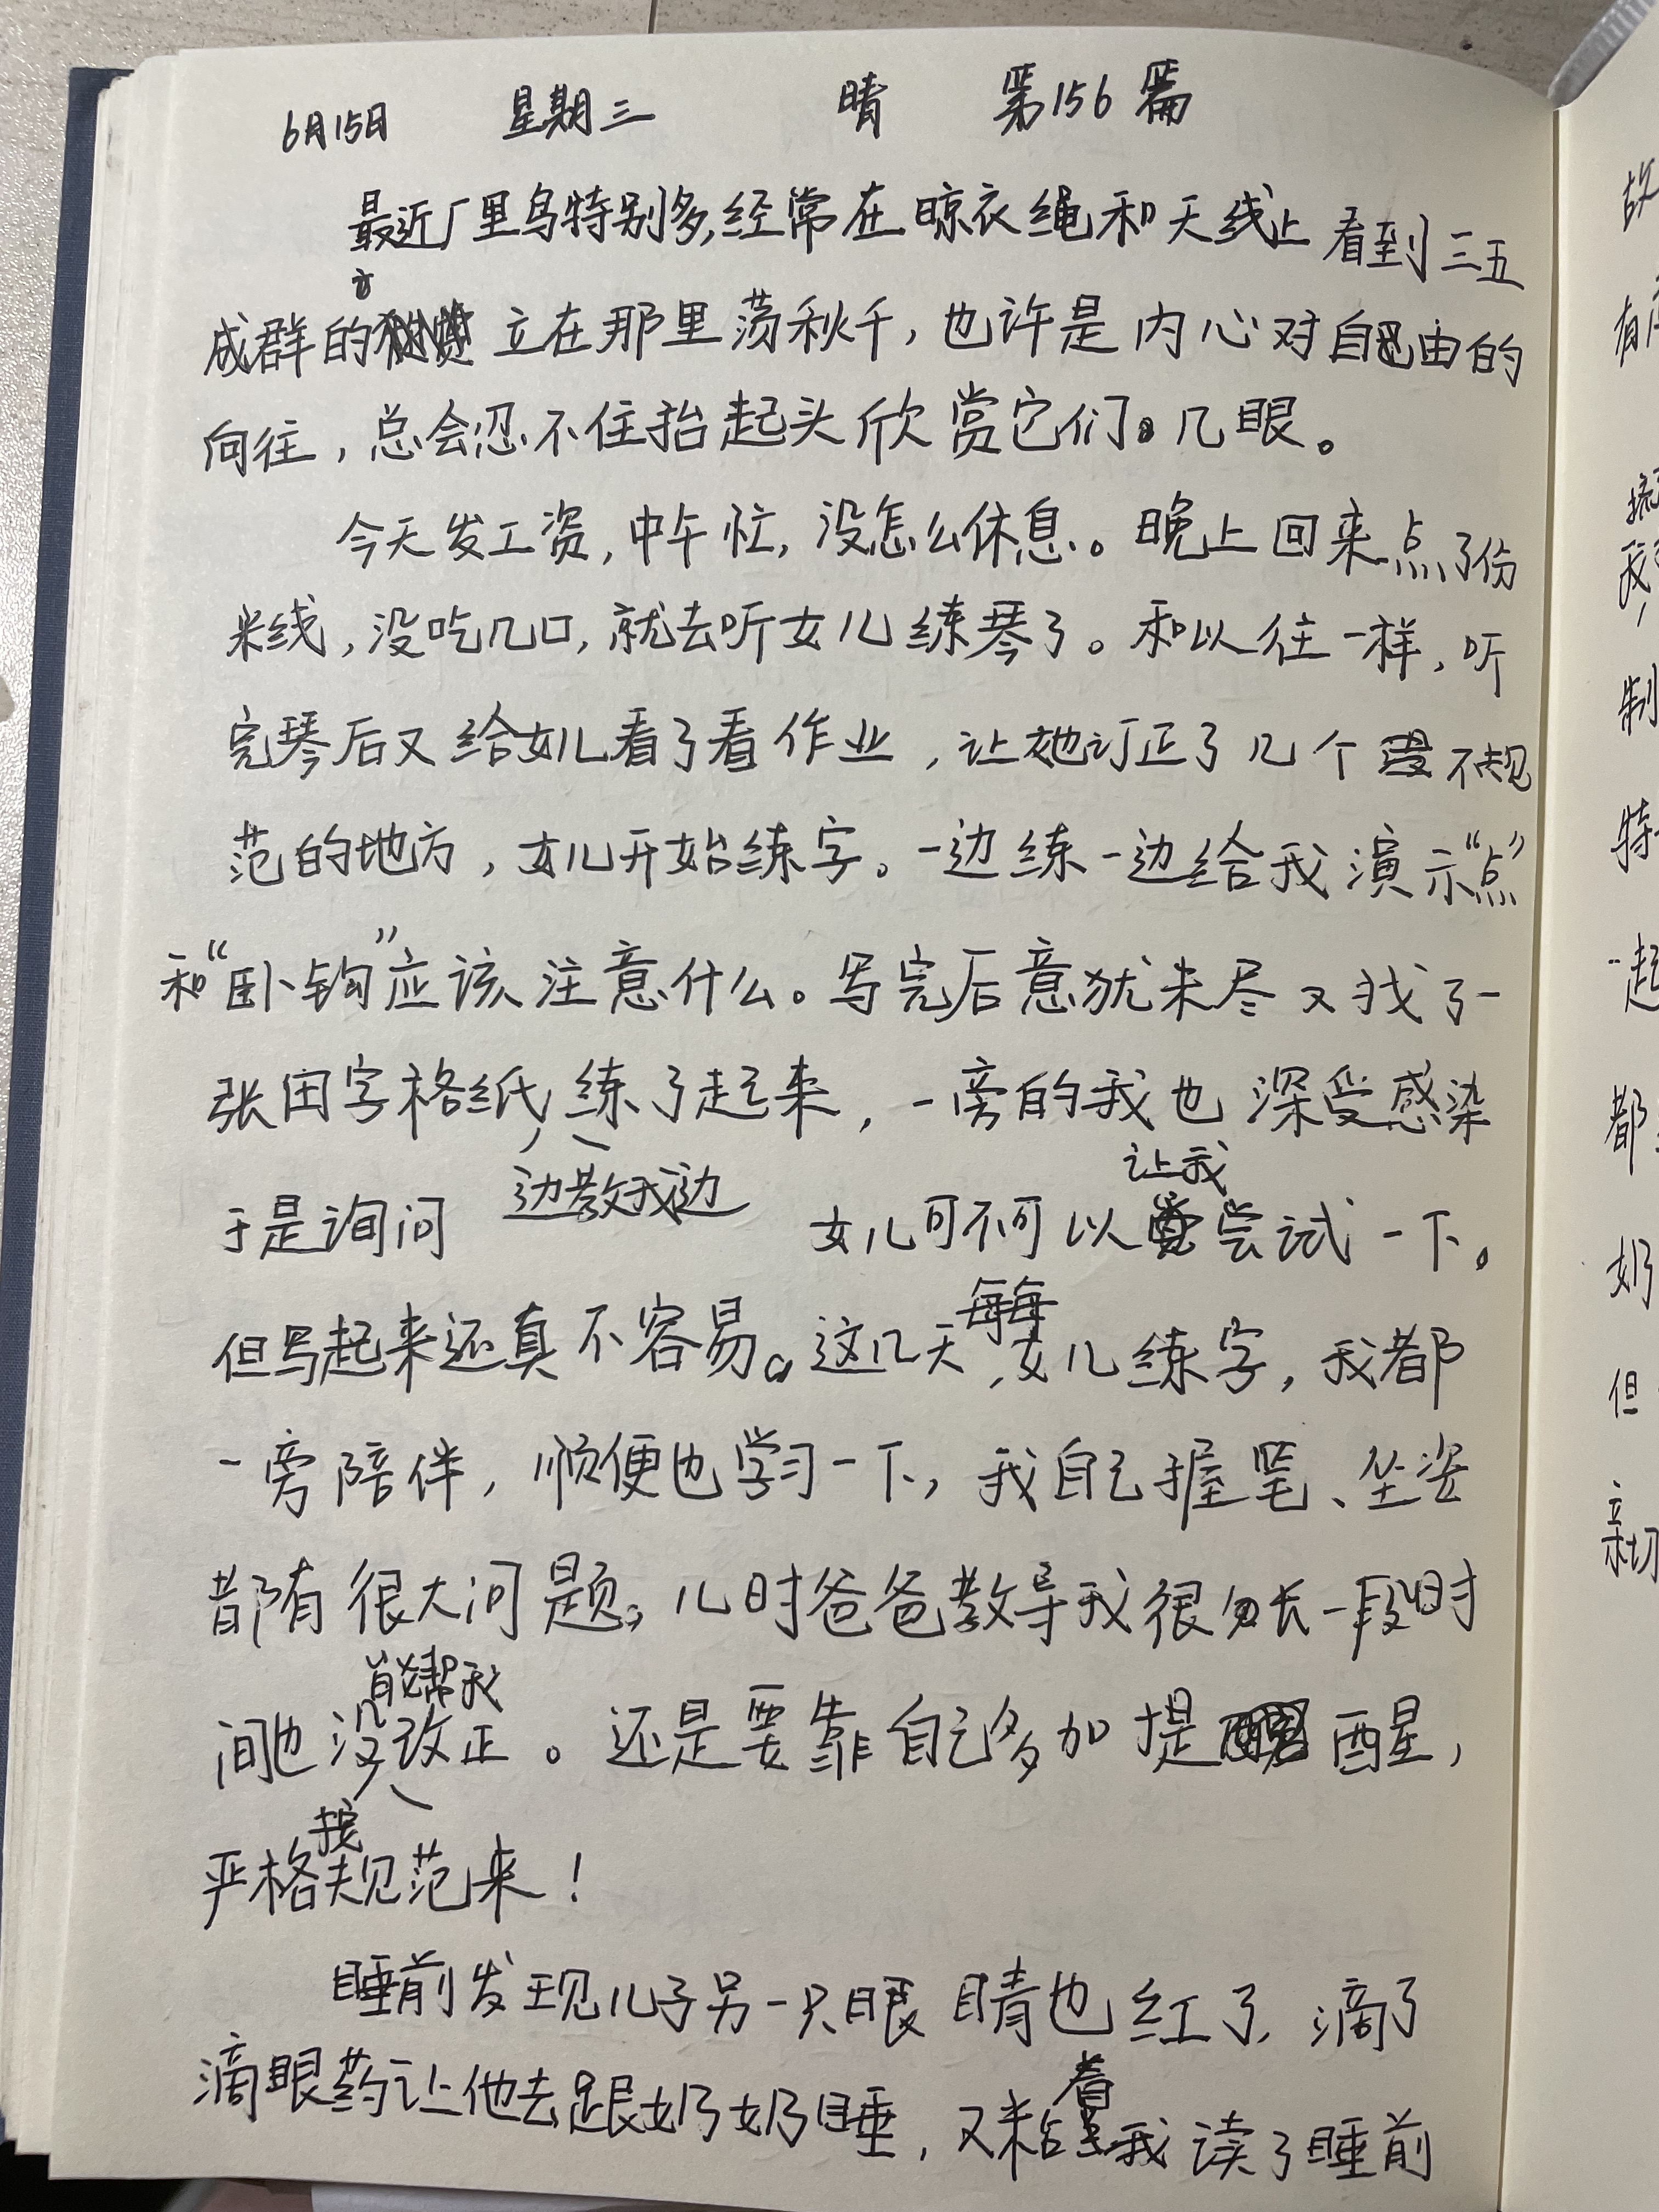 6月15日 星期三 晴 第156篇
最近厂里鸟特别多,经常在晾衣绳和天线上看到三五
成群的 立在那里荡秋千,也许是内心对自由的
向往,总会忍不住抬起头欣赏它们几眼。
今天发工资,中午忙,没怎么休息。晚上回来点了份
米线,没吃几口,就去听女儿练琴了。和以往一样,听
完琴后又给女儿看了看作业,让她订正了几个不规
范的地方,女儿开始练字。一边练一边给我演示“点”
和“卧钩”应该注意什么。写完后意犹未尽又找了一
张田字格纸练了起来,一旁的我也深受感染
边教我边
让我
于是询问 女儿可不可以尝试一下。
每每
但写起来还真不容易。这几天,女儿练字,我都
一旁陪伴,顺便也学习一下,我自己握笔、坐姿
都有很大问题,儿时爸爸教导我很长一段时
能帮我
间也没改正。还是要靠自己多加提醒,
按
严格规范来!
睡前发现儿子另一只眼睛也红了,滴了
着
滴眼药让他去跟奶奶睡,又粘我读了睡前
故
有
我
制
特
一起
都
奶
但
亲切